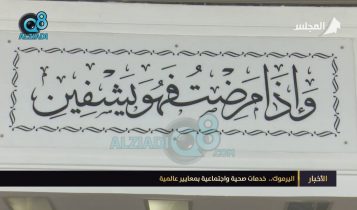 المجلس
Q8
ALZIADI
.COM
وَإِذَا مَرِضْتُ فَهُوَ يَشْفِينِ
ALZIADI Q8
.COM
الأخبار
اليرموك.. خدمات صحية واجتماعية بمعايير عالمية